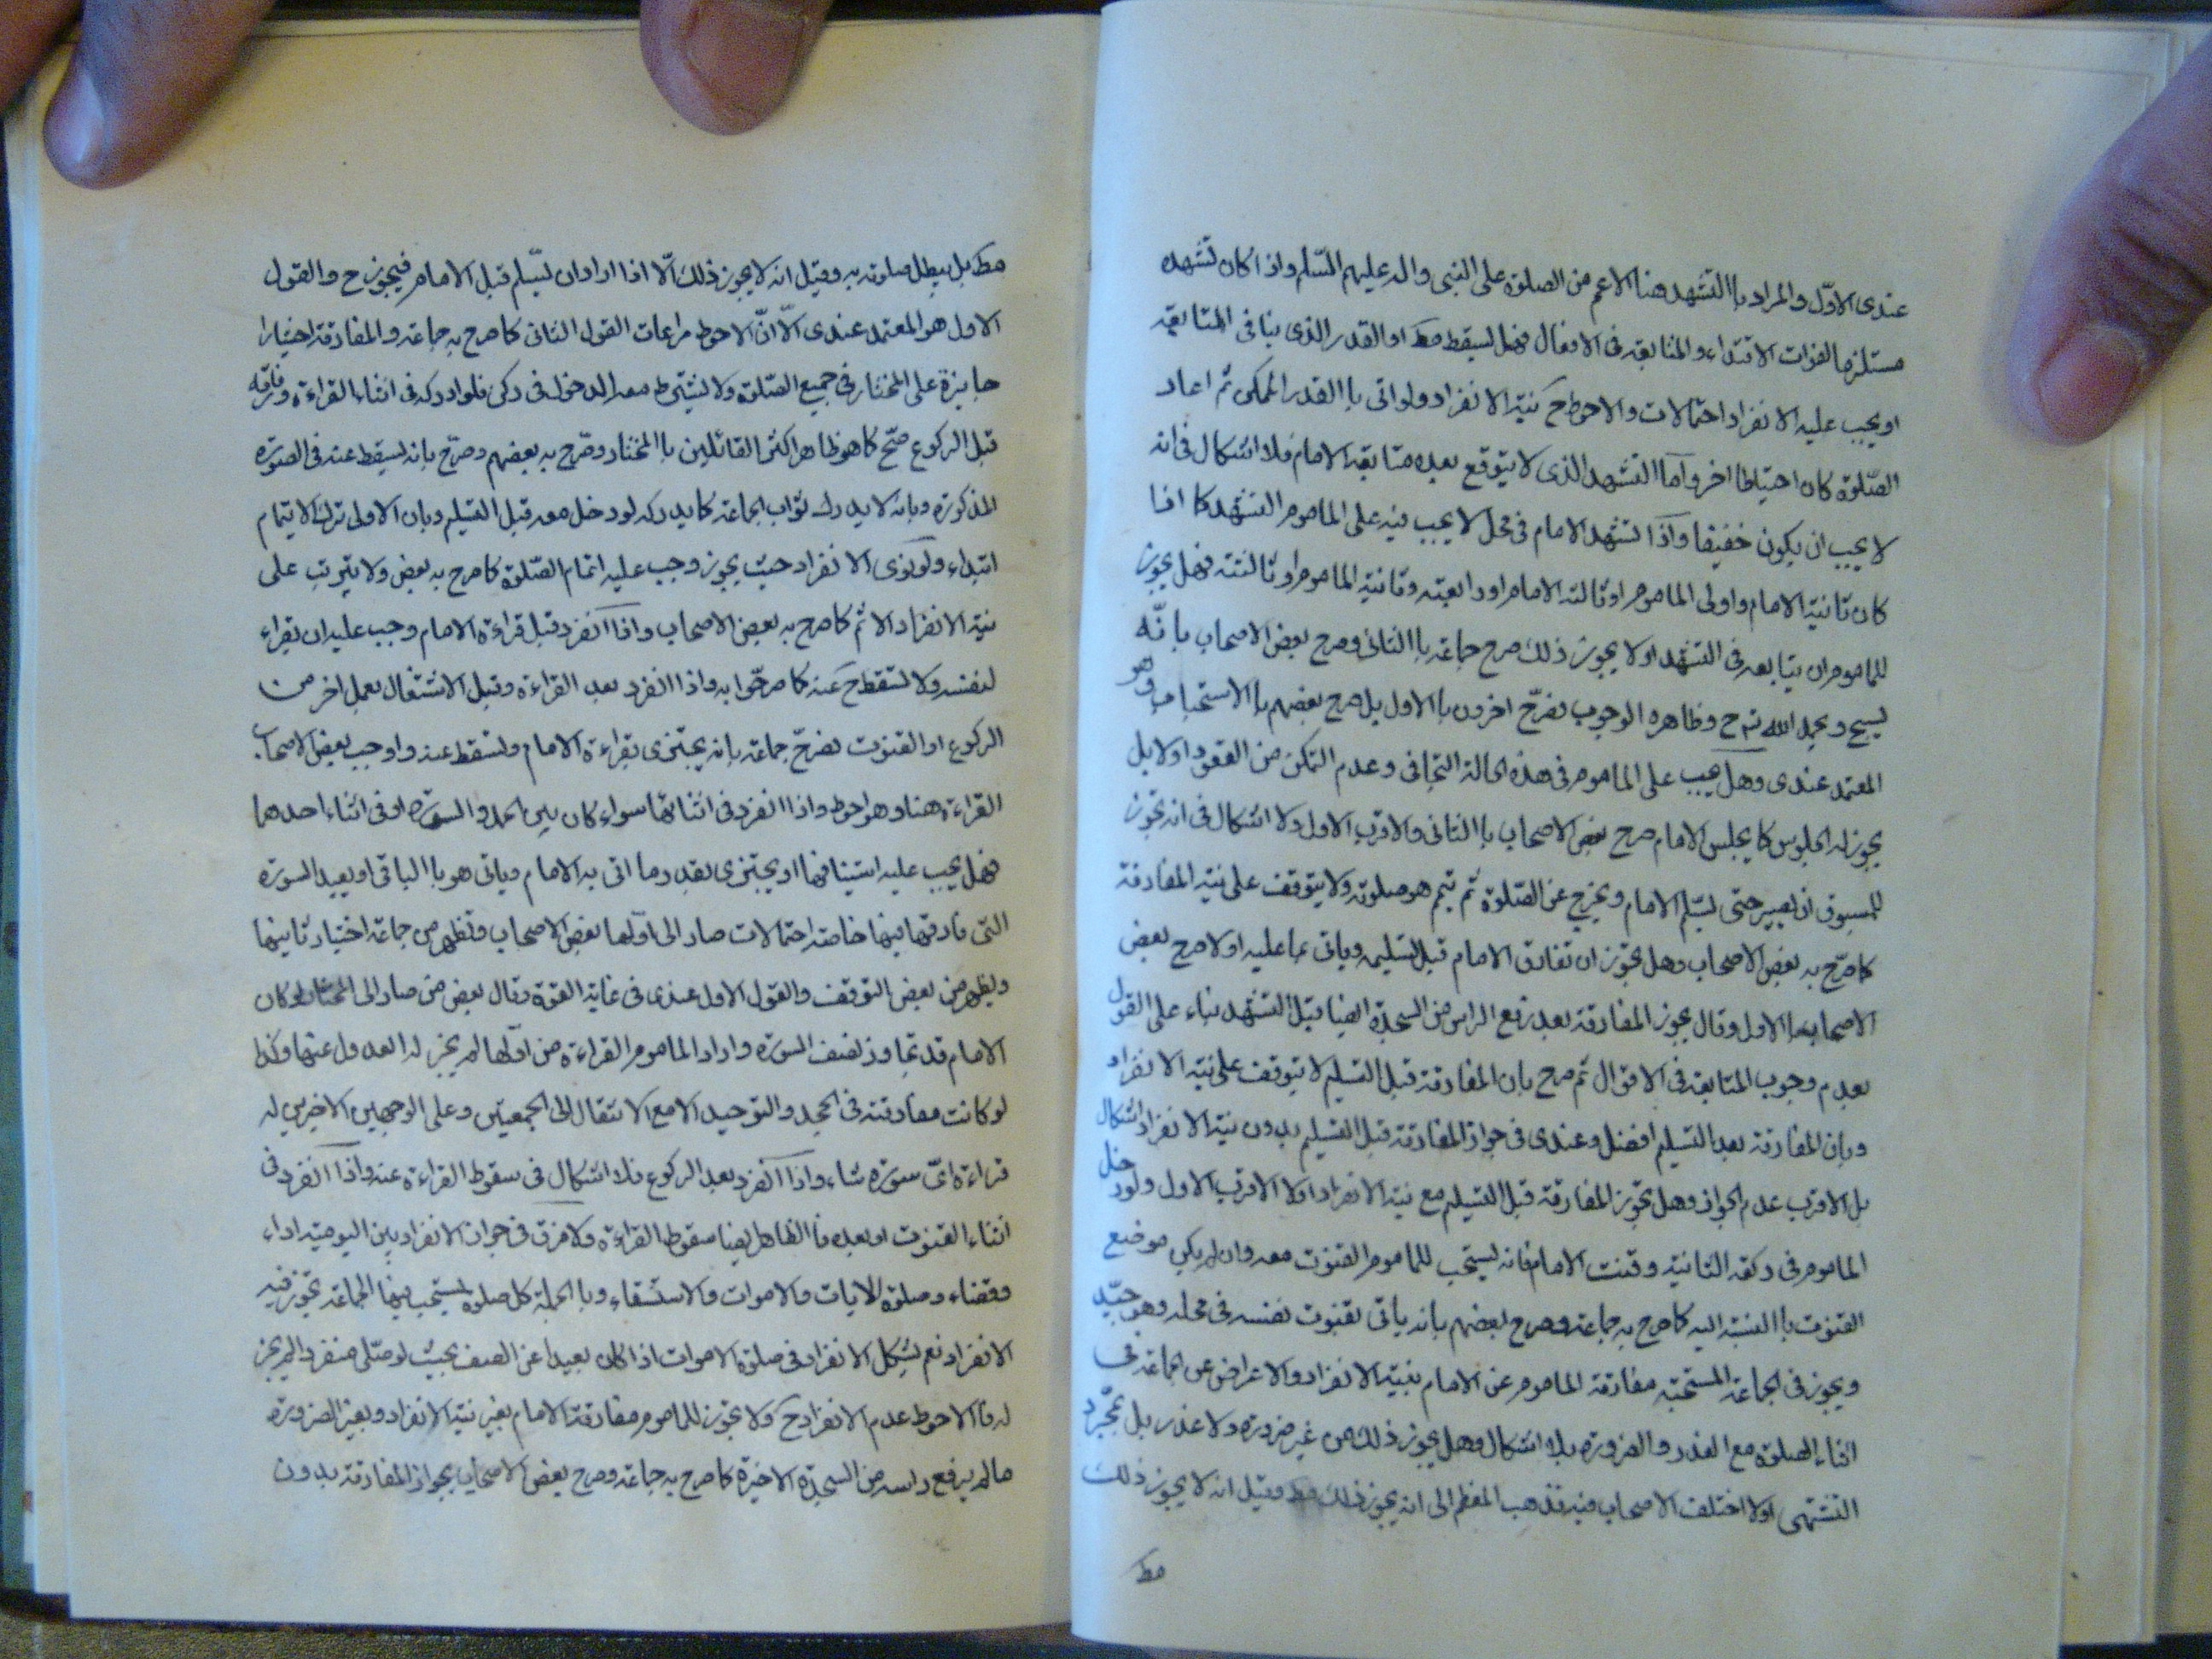 عندى الاوّل والمراد باالتشهد هنا الاعم من الصلوة على النبى واله عليهم السّلم واذا كان تشهده
مستلزما لفوات الاقتداء والمتابعة فى الافعال فهل يسقط مط او القدر الذى ينافى المتابعة
او يجب عليه الانفراد احتمالات والاحوط ح نية الانفراد ولو اتى باالقدر الممكن ثم اعاد
الصّلوة كان احتياطا اخر وامّا التشهد الذى لا يتوقع بعده متابعة الامام فلا اشكال فى انه
لا يجب ان يكون خفيفا واذا تشهد الامام فى محل لا يجب فيه على الماموم التشهد كما اذا
كان ثانية الامام واولى الماموم او ثالثة الامام او رابعته وثانية الماموم او ثالثته فهل يجوز
للماموم ان يتابعه فى التشهد او لا يجوز ذلك صرح جماعة باالثانى وصرح بعض الاصحاب بانّه
يسبح ويحمد الله تع ح وظاهره الوجوب بفرح اخرون باالاول بل صرح بعضهم باالاستحباب وهو
المعتمد عندى وهل يجب على الماموم فى هذه الحالة التجافى وعدم التمكن من القعود او لا بل
يجوز له الجلوس كما يجلس الامام صرح بعض الاصحاب باالثانى والاقرب الاول ولا اشكال فى انه يجوز
للمسبوق ان يصبر حتى يسّلم الامام ويخرج عن الصّلوة ثم يتم هو صلوته ولا يتوقف على نية المفارقة
كما صرّح به بعض الاصحاب وهل يجوز ان تفارق الامام قبل تسليمه وياتى بما عليه او لا صرح بعض
الاصحاب باالاول وقال يجوز المفارقة بعد رفع الراس من السجدة ايضا قبل التشهد بناء على القول
بعدم وجوب المتابعة فى الاقوال ثم صرح بان المفارقة قبل التسليم لا يتوقف على نية الانفراد
وبان المفارقة بعد التسليم افضل وعندى فى جواز المفارقة قبل التسليم بدون نية الانفراد اشكال
بل الاقرب عدم الجواز وهل يجوز المفارقة قبل التسليم مع نية الانفراد او لا الاقرب الاول ولو دخل
الماموم فى ركعة الثانية وقنت الامام فانه يستحب للماموم القنوت معه وان لم يكن موضع
القنوت باالنسبة اليه كما صرح به جماعة وصرح بعضهم بانه ياتى بقنوت نفسه فى محله وهو جيّد
ويجوز فى الجماعة المستحبة مفارقة الماموم عن الامام بنية الانفراد والاعراض عن الجماعة فى
اثناء الصلوة مع العذر والضرورة بلا اشكال وهل يجوز ذلك من غير ضرورة ولا عذر بل بمجرّد
التشهى او لا اختلف الاصحاب فيه فذهب المعظم الى انه يجوز ذلك مط وقيل انه لا يجوز ذلك
مط
مط بل يبطل صلوته به وقيل انه لا يجوز ذلك الّا اذا اراد ان يسّلم قبل الامام فيجوز ح والقول
الاول هو المعتمد عندى الّا انّ الاحوط مراعات القول الثانى كما صرح به جماعة والمفارقة اختيارا
جايزة على المختار فى جميع الصّلوة ولا يشترط معه الدخول فى ركن فلو ادركه فى اثناء القراءة وفارقه
قبل الركوع صّح كما هو ظاهر اكثر القائلين باالمختار وصّرح به بعضهم وصرّح بانه يسقط عنه فى الصورة
المذكورة وبانه لا يدرك ثواب الجماعة كما يدركه لو دخل معه قبل التسليم وبان الاولى ترك الايتمام
ابتداء ولو نوى الانفراد حيث يجوز وجب عليه اتمام الصّلوة كما صرح به بعض ولا يترتب على
نية الانفراد الاثم كما صرح به بعض الاصحاب واذا انفرد قبل قراءة الامام وجب عليه ان يقراء
لنفسه ولا تسقط ح عنه كما صرّحوا به واذا انفرد بعد القراءة وقبل الاشتغال بعمل اخر من
الركوع او القنوت فصرّح جماعة بانه يجتزى بقراءة الامام وتسقط عنه واوجب بعض الاصحاب
القراءة هنا وهو احوط واذا انفرد فى اثنائها سواء كان بين الحمد والسورة او فى اثناء احدهما
فهل يجب عليه استينافها او يجتزى بقدر ما اتى به الامام وياتى هو باالباقى او يعيد السورة
التى فارقه فيها خاصة احتمالات صار الى اوّلها بعض الاصحاب ويظهر من جماعة اختيار ثانيها
ويظهر من بعض التوقف والقول الاول عندى فى غاية القوة وقال بعض من صار الى المختار لو كان
الامام قد تجاوز نصف السورة واراد الماموم القراءة من اوّلها لم يجز له العدول عنها وكذا
لو كانت مفارقته فى الجحد والتوحيد الا مع الانتقال الى الجمعتين وعلى الوجهين الاخيرين له
قراءة اىّ سورة شاء واذا انفرد بعد الركوع فلا اشكال فى سقوط القراءة عنه واذا انفرد فى
اثناء القنوت او بعده فاالظاهر ايضا سقوط القراءة ولا فرق فى جواز الانفراد بين اليومية اداء
وقضاء وصلوة الايات والاموات والاستسقاء وباالجملة كل صلوة يستحب فيها الجماعة يجوز فيه
الانفراد نعم يشكل الانفراد فى صلوة الاموات اذا كان بعيدا عن الصف بحيث لو صّلى منفردا لم يجز
له فاالاحوط عدم الانفراد ح ولا يجوز للماموم مفارقة الامام بغير نية الانفراد وبغير الضرورة
ما لم يرفع راسه من السجدة الاخيرة كما صرح به جماعة وصرح بعض الاصحاب بجواز المفارقة بدون